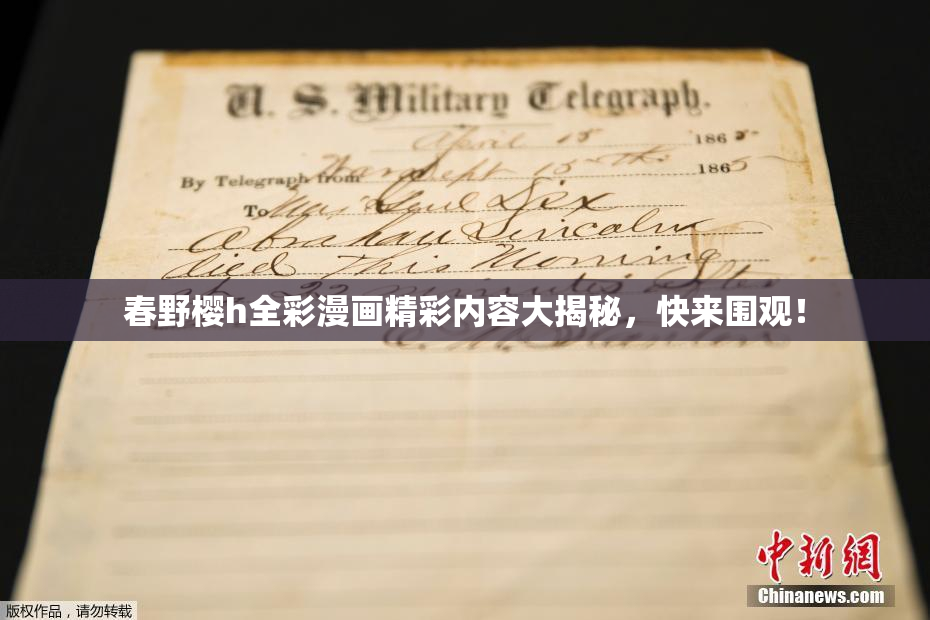 U. S. Military Telegraph.
April 15 1865
By Telegraph from War Dept 15th 1865
To Maj Genl Dix
Abraham Lincoln
died This Morning
at 22 minutes after
春野樱h全彩漫画精彩内容大揭秘，快来围观！
E. M. Stanton
中新網
Chinanews.com
版权作品，请勿转载